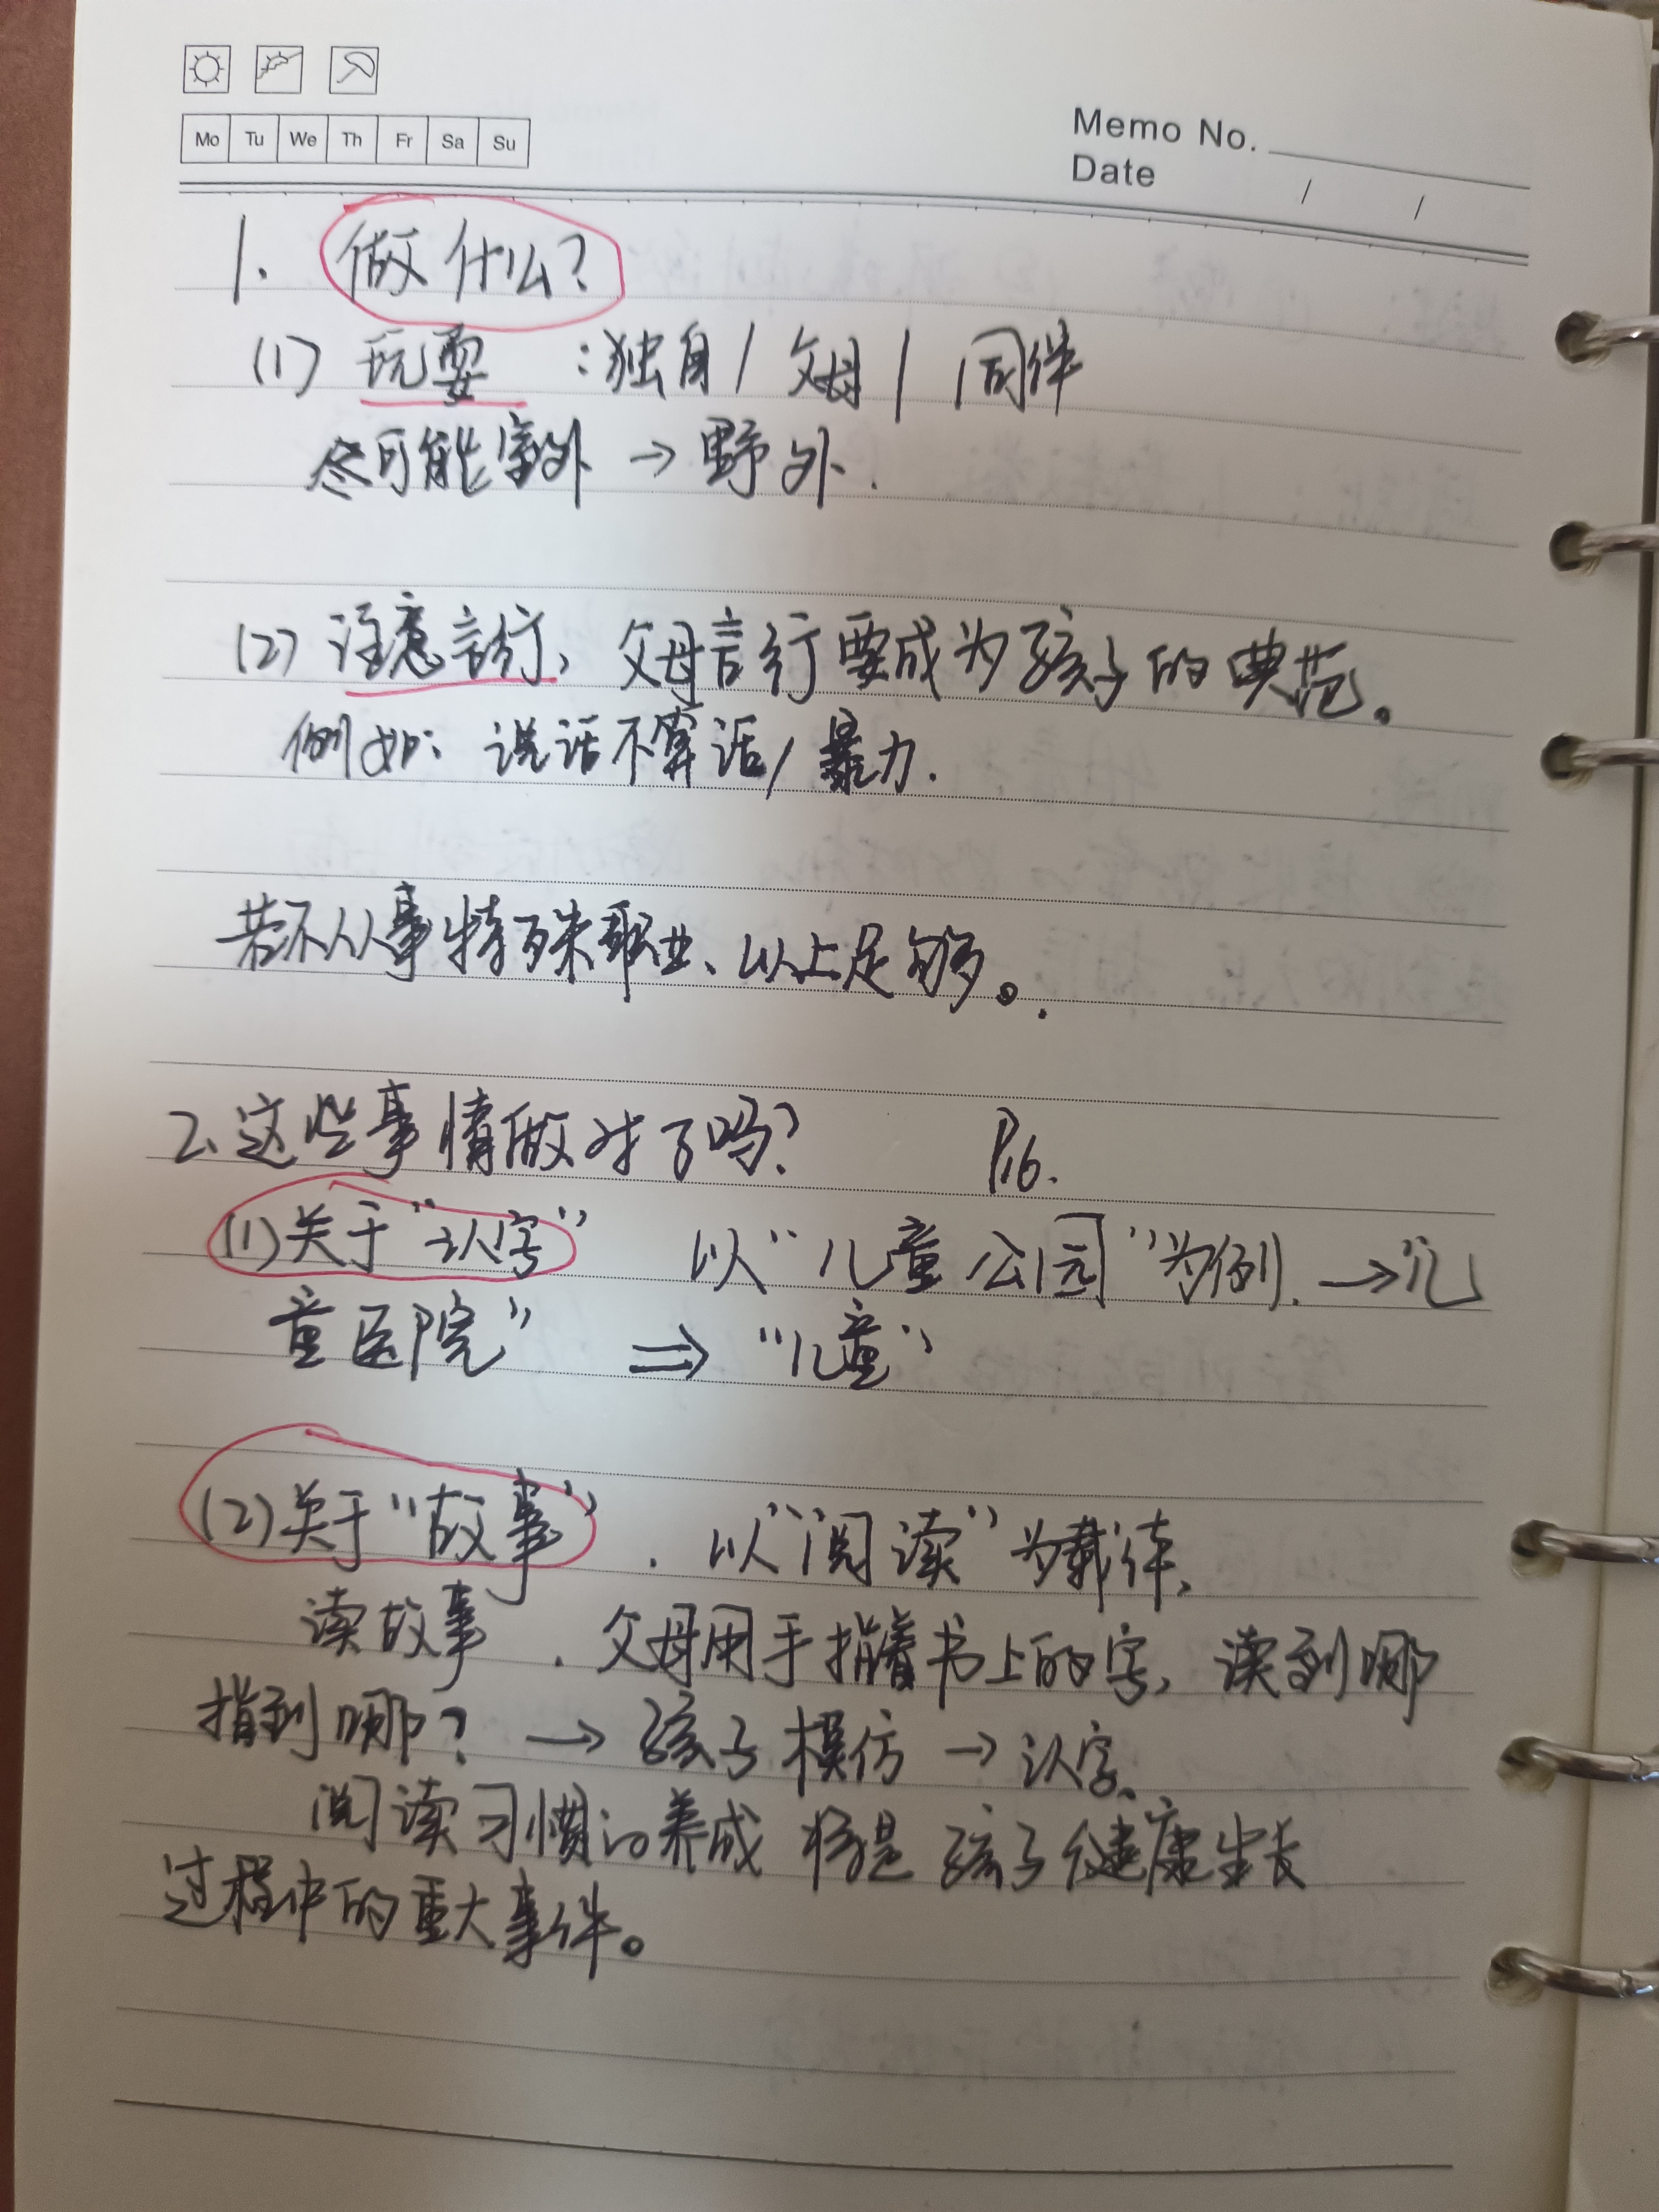 Mo Tu We Th Fr Sa Su
Memo No.
Date / /
1. 做什么?
(1) 玩耍 :独自/父母/同伴
尽可能室外→野外.
(2) 注意言行, 父母言行要成为孩子的典范。
例如: 说话不算话/暴力.
若不从事特殊职业、以上足够。
2、这些事情做对了吗? P16.
(1)关于“认字” 以“儿童公园”为例. →“儿
童医院” ⇒ “儿童”
(2)关于“故事”. 以“阅读”为载体、
读故事. 父母用手指着书上的字, 读到哪
指到哪? → 孩子模仿 → 认字、
阅读习惯的养成 将是 孩子健康生长
过程中的重大事件。